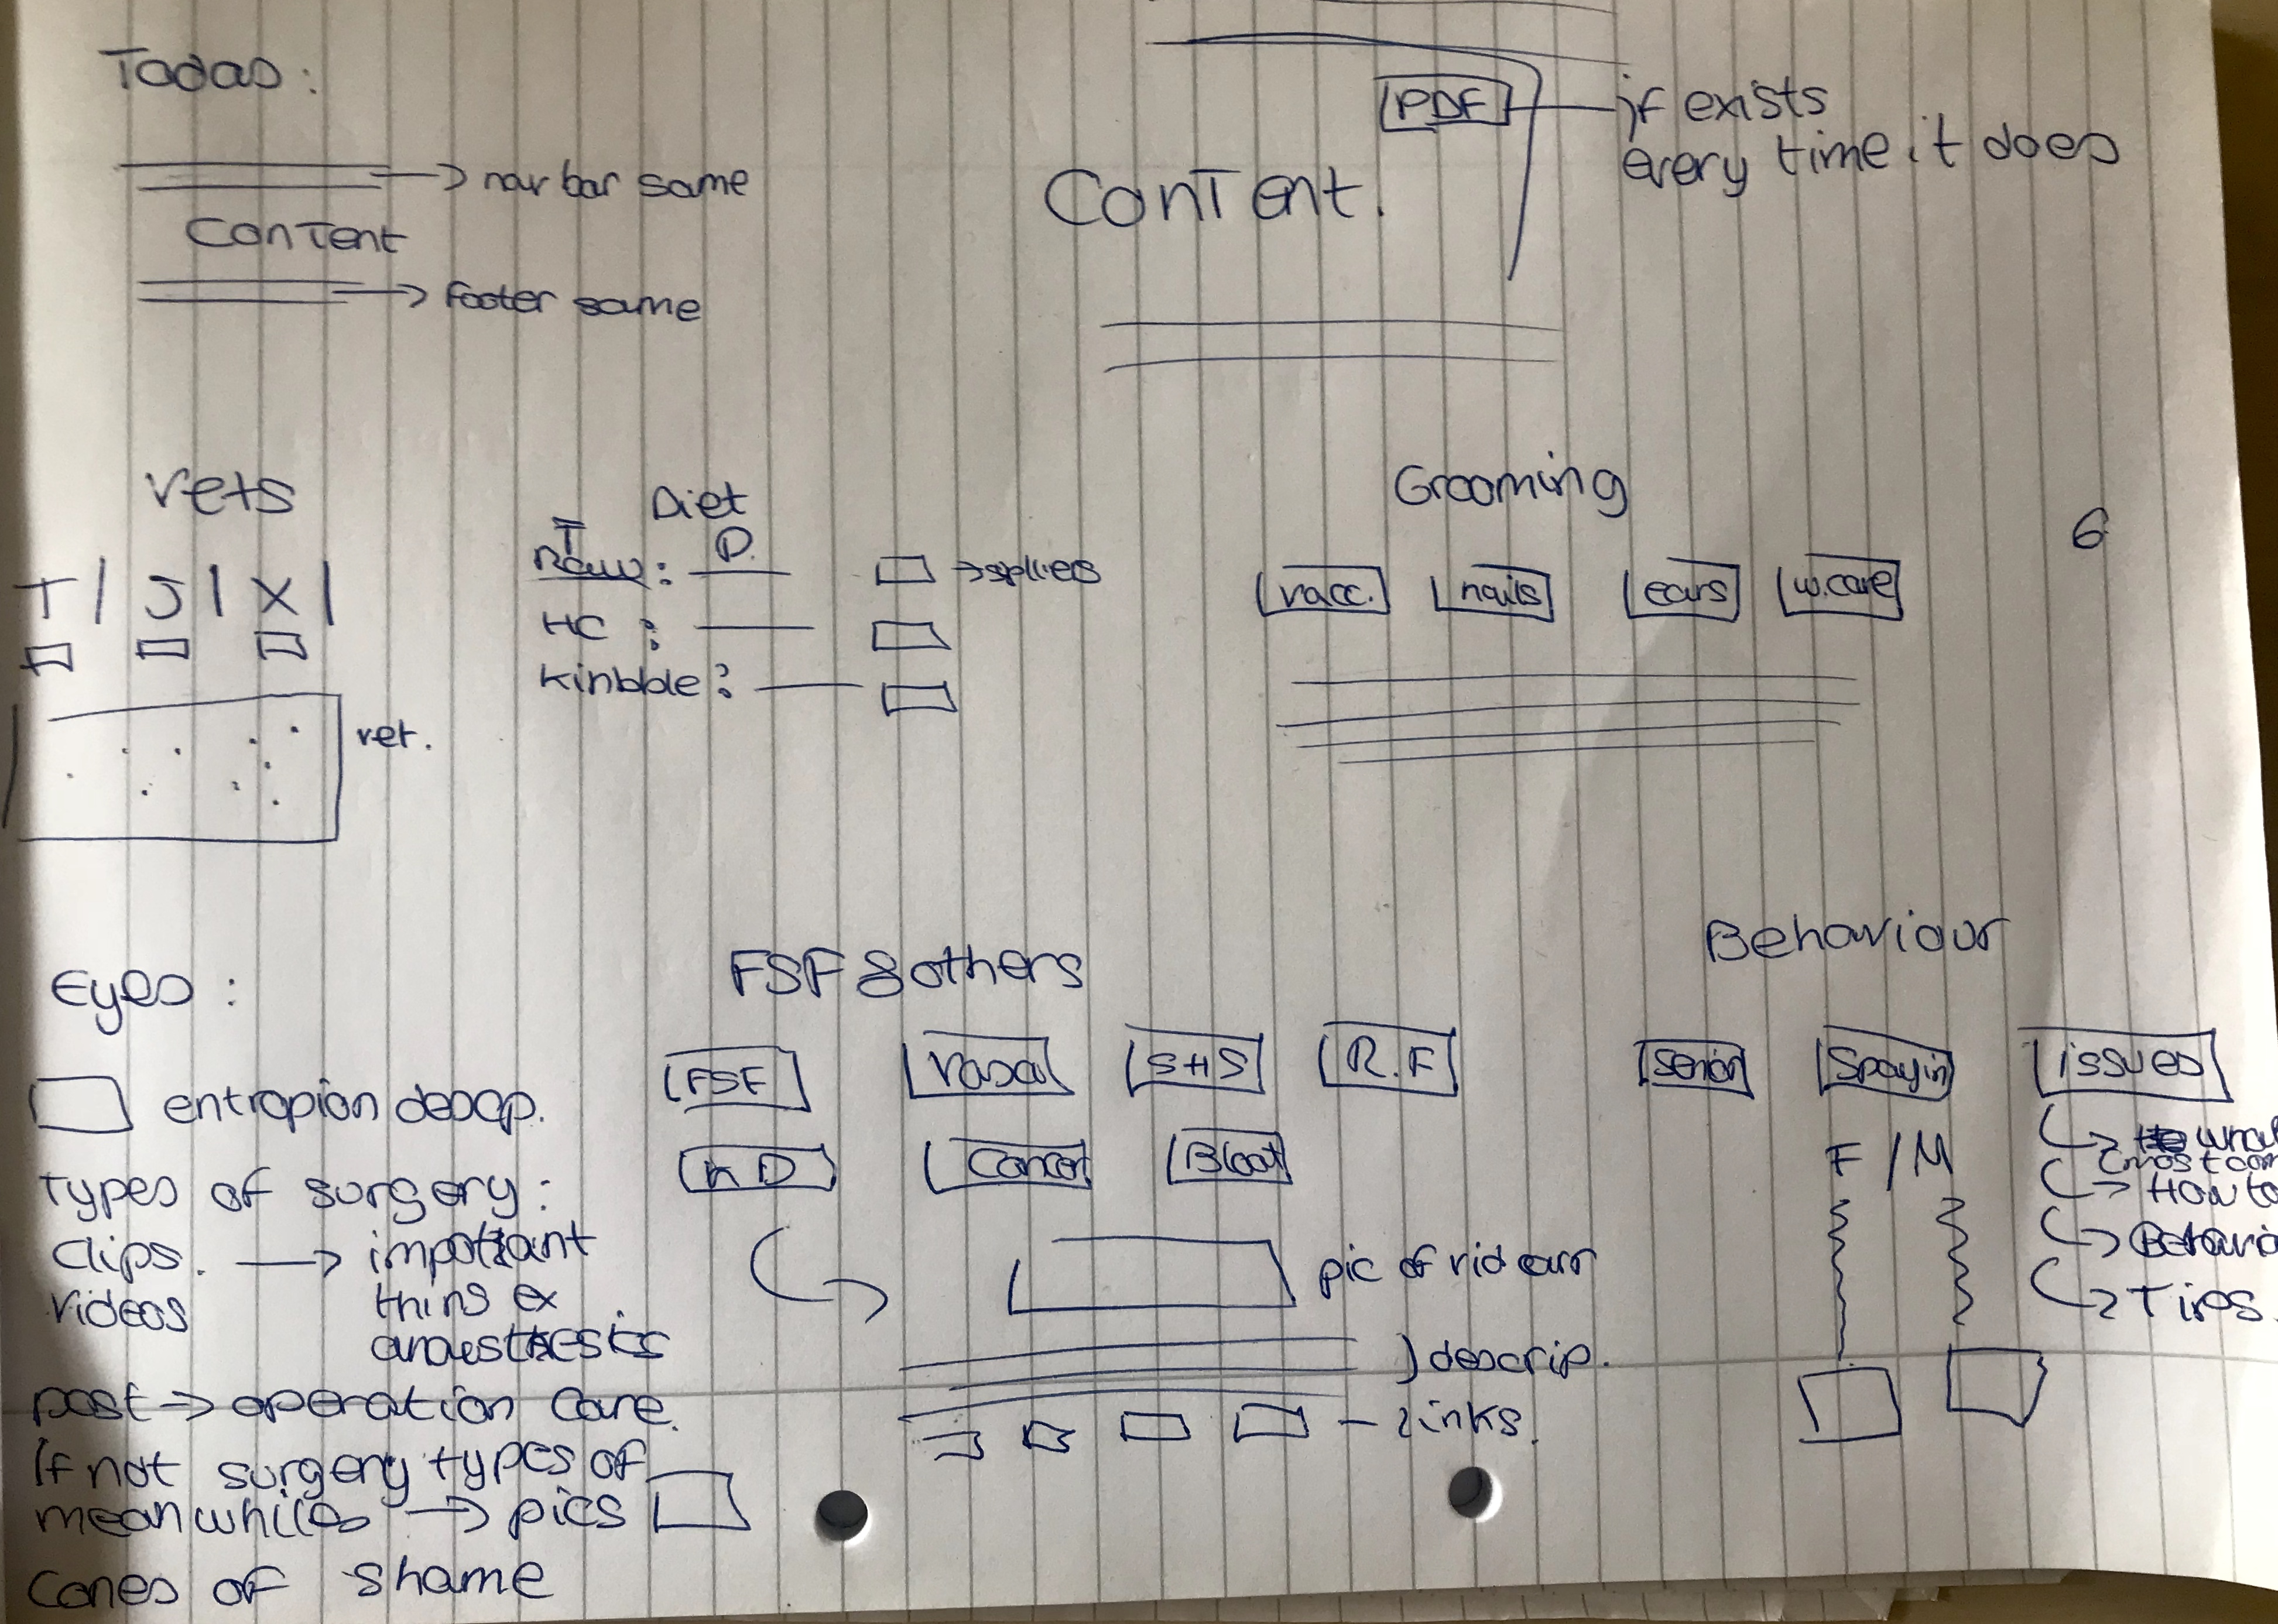 Todas:
nav bar same
Content
footer same
PDF
if exists
every time it does
Content.
vets
T | J | X |
vet.
Diet
T
P.
Raw:
HC :
Kinbble:
Grooming
vacc.
nails
ears
w.care
6
Eyes :
entropion descp.
types of surgery:
Clips. → impottant
videos
thins ex
post → operation care.
If not surgery types of
meanwhiles → pics
Cones of shame
FSF & others
FSF
Nasal
SHS
R.F
Bloat
pic of vid
) descrip.
- links.
Behaviour
Spayin
issues
F / M
How to
Tips.